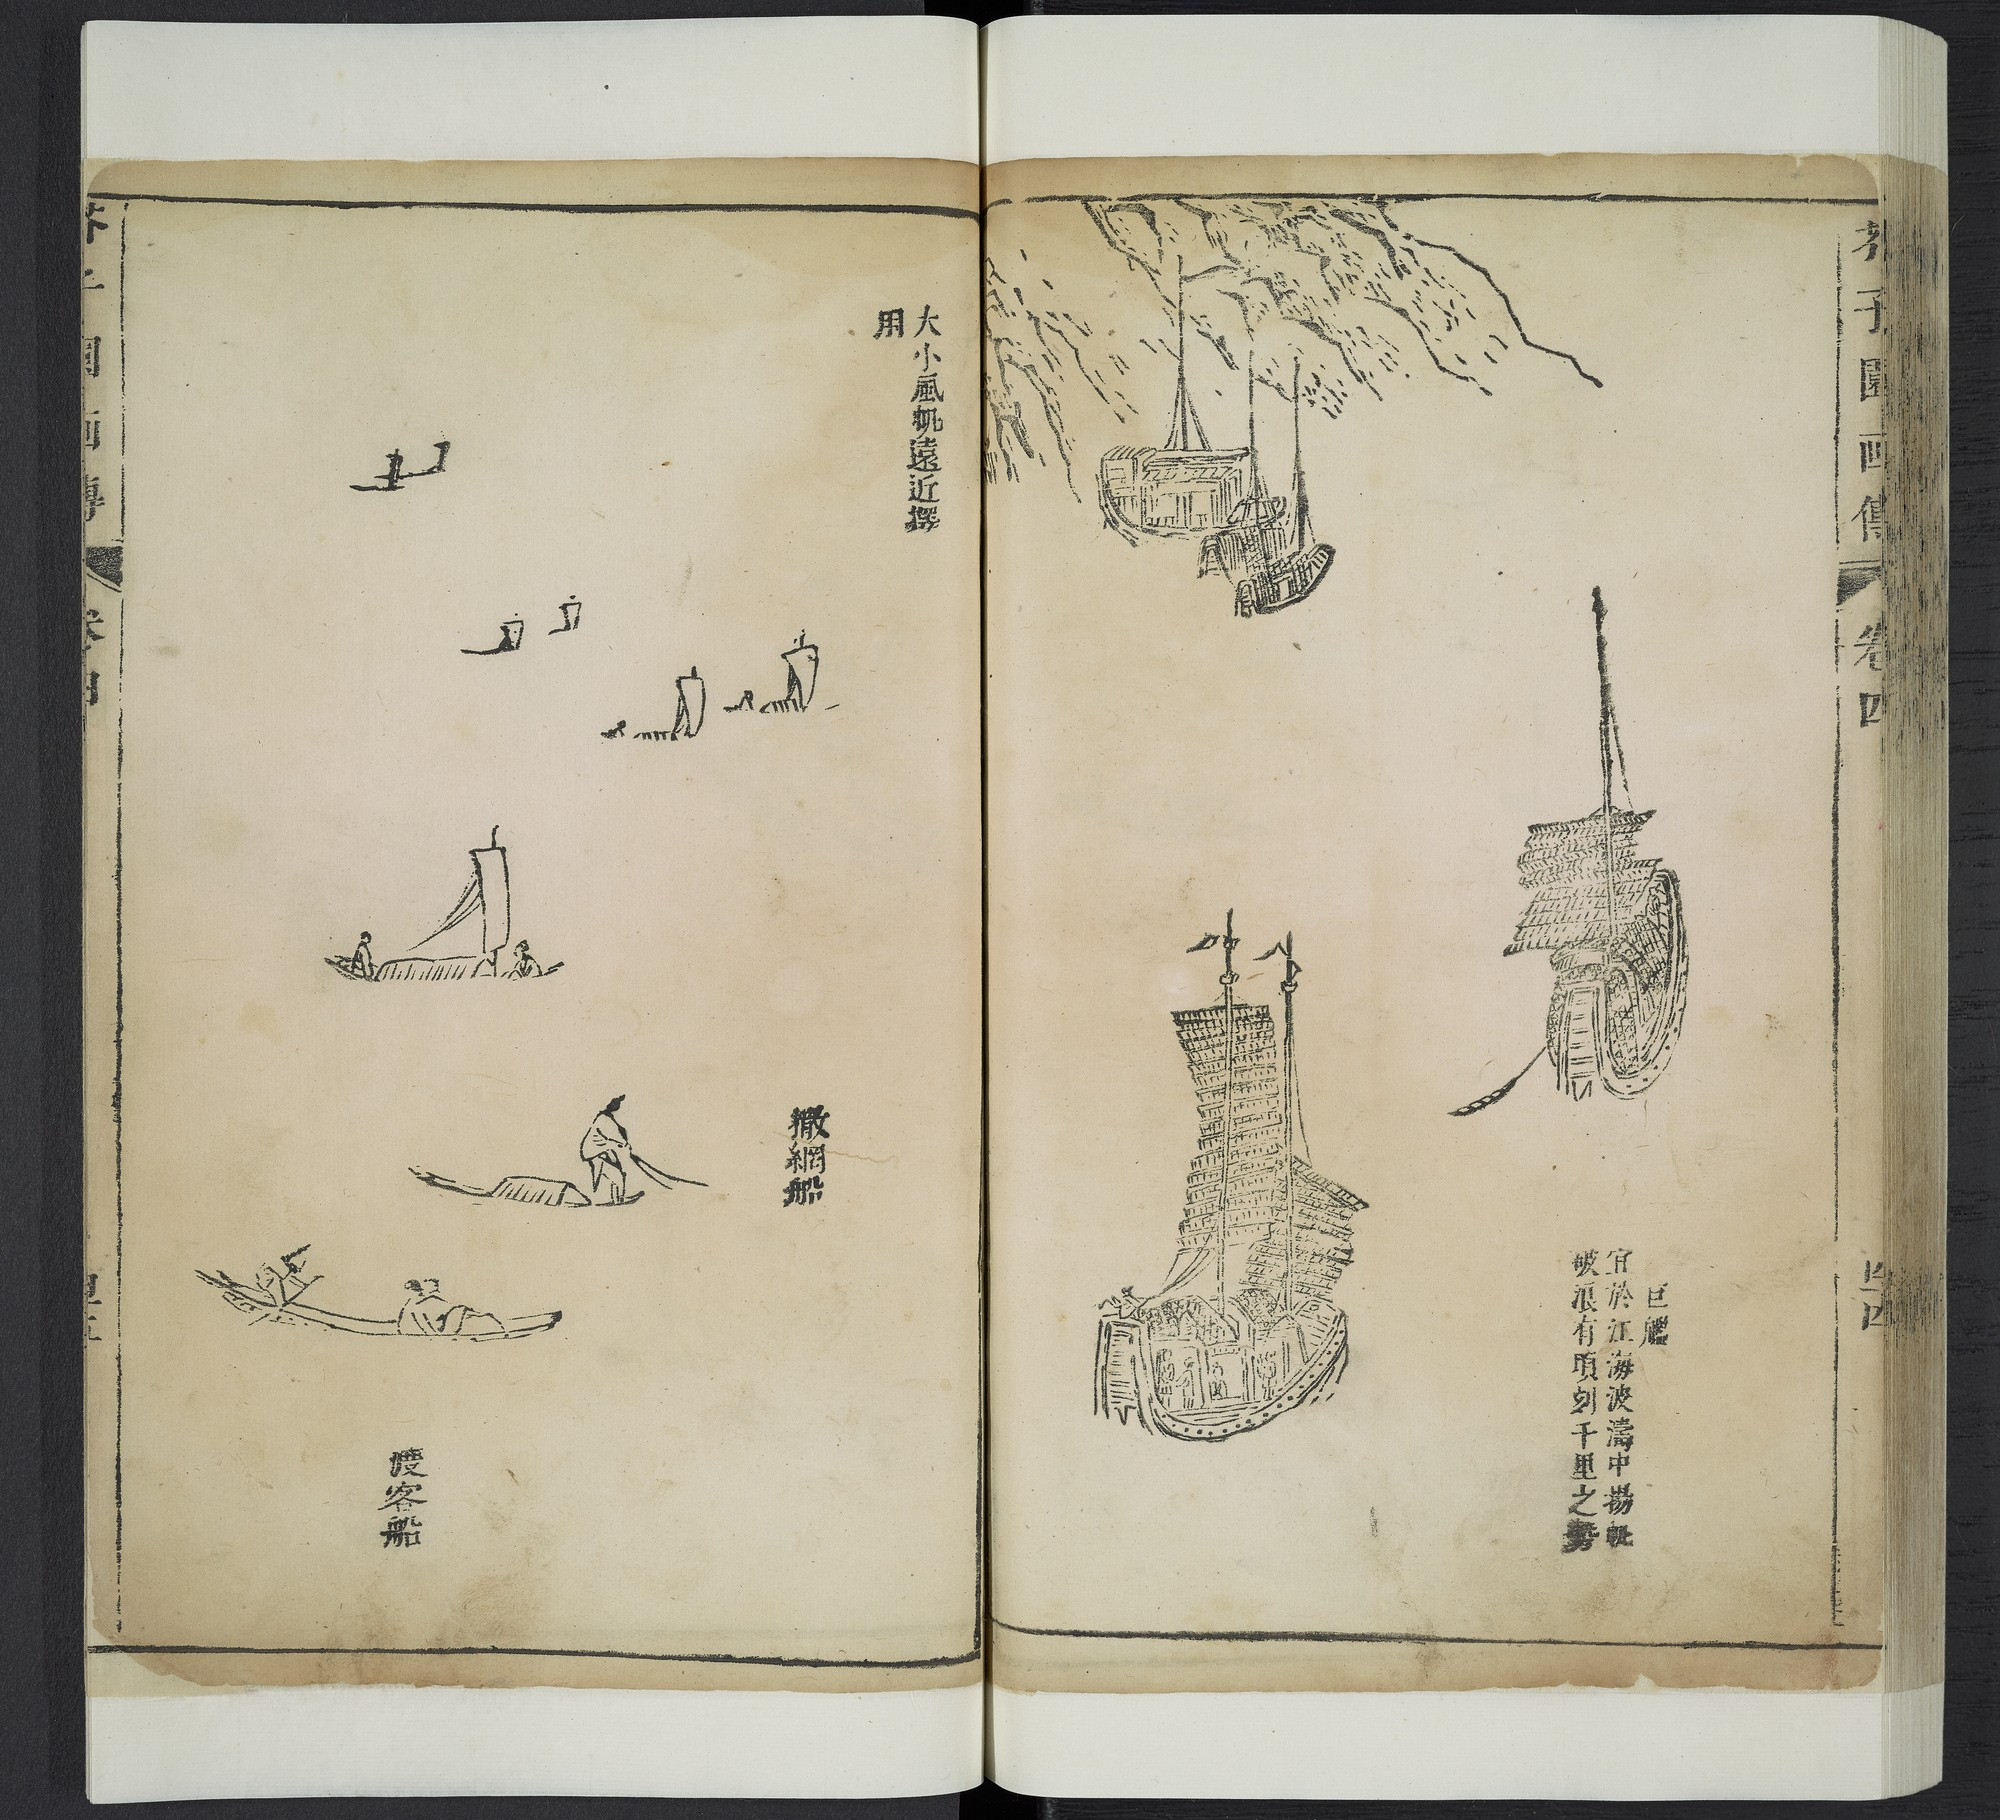 芥子園画傳
卷四
四四
巨艦
宜於江海波濤中揚帆
破浪有頃刻千里之勢
大小風帆遠近擇
用
撒網船
渡客船
芥子園画傳
卷四